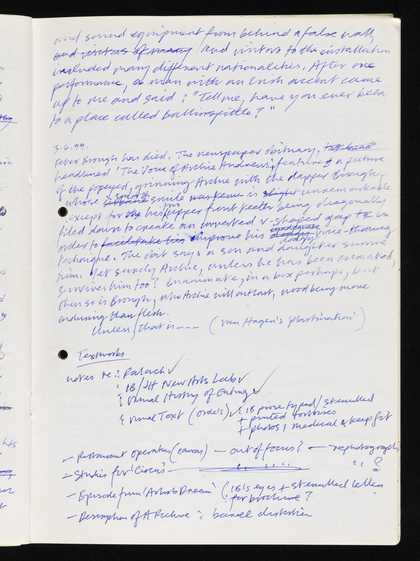 and sound equipment from behind a false wall,
and visitors to the installation
included many different nationalities. After one
performance, a man with an Irish accent came
up to me and said: "Tell me, have you ever been
to a place called Ballinspittle?"
5.6.99.
Peter Brough has died. The newspaper obituary,
headlined 'The Voice of Archie Andrews', features a picture
of the popeyed, grinning Archie with the dapper Brough,
whose smile was unremarkable
except for the upper front teeth being diagonally
filed down to create an inverted V-shaped gap
in order to improve his voice-throwing
technique. The obit says a son and daughter survive
him. Yet surely Archie, unless he has been cremated,
survives him too? Inanimate, in a box perhaps, but
then so is Brough, who Archie will outlast, wood being more
enduring than flesh.
Unless that is --- (Van Hagen's 'plastination')
Textworks
notes re: Palach ✓
: IB/JH New Arts Lab ✓
: Visual History of Eating ✓
: Visual Text (order) ✓ : IB prose typed/stencilled
+ printed tortoises
+ photos, medical + keep fit
- Restaurant Operation (canvas) - out of focus? - rephotographs
- Studies for 'Circus' -
- Episode from 'Artist's Dream' (IB's eyes + stencilled letters
for brochure?
- Description of A Picture :